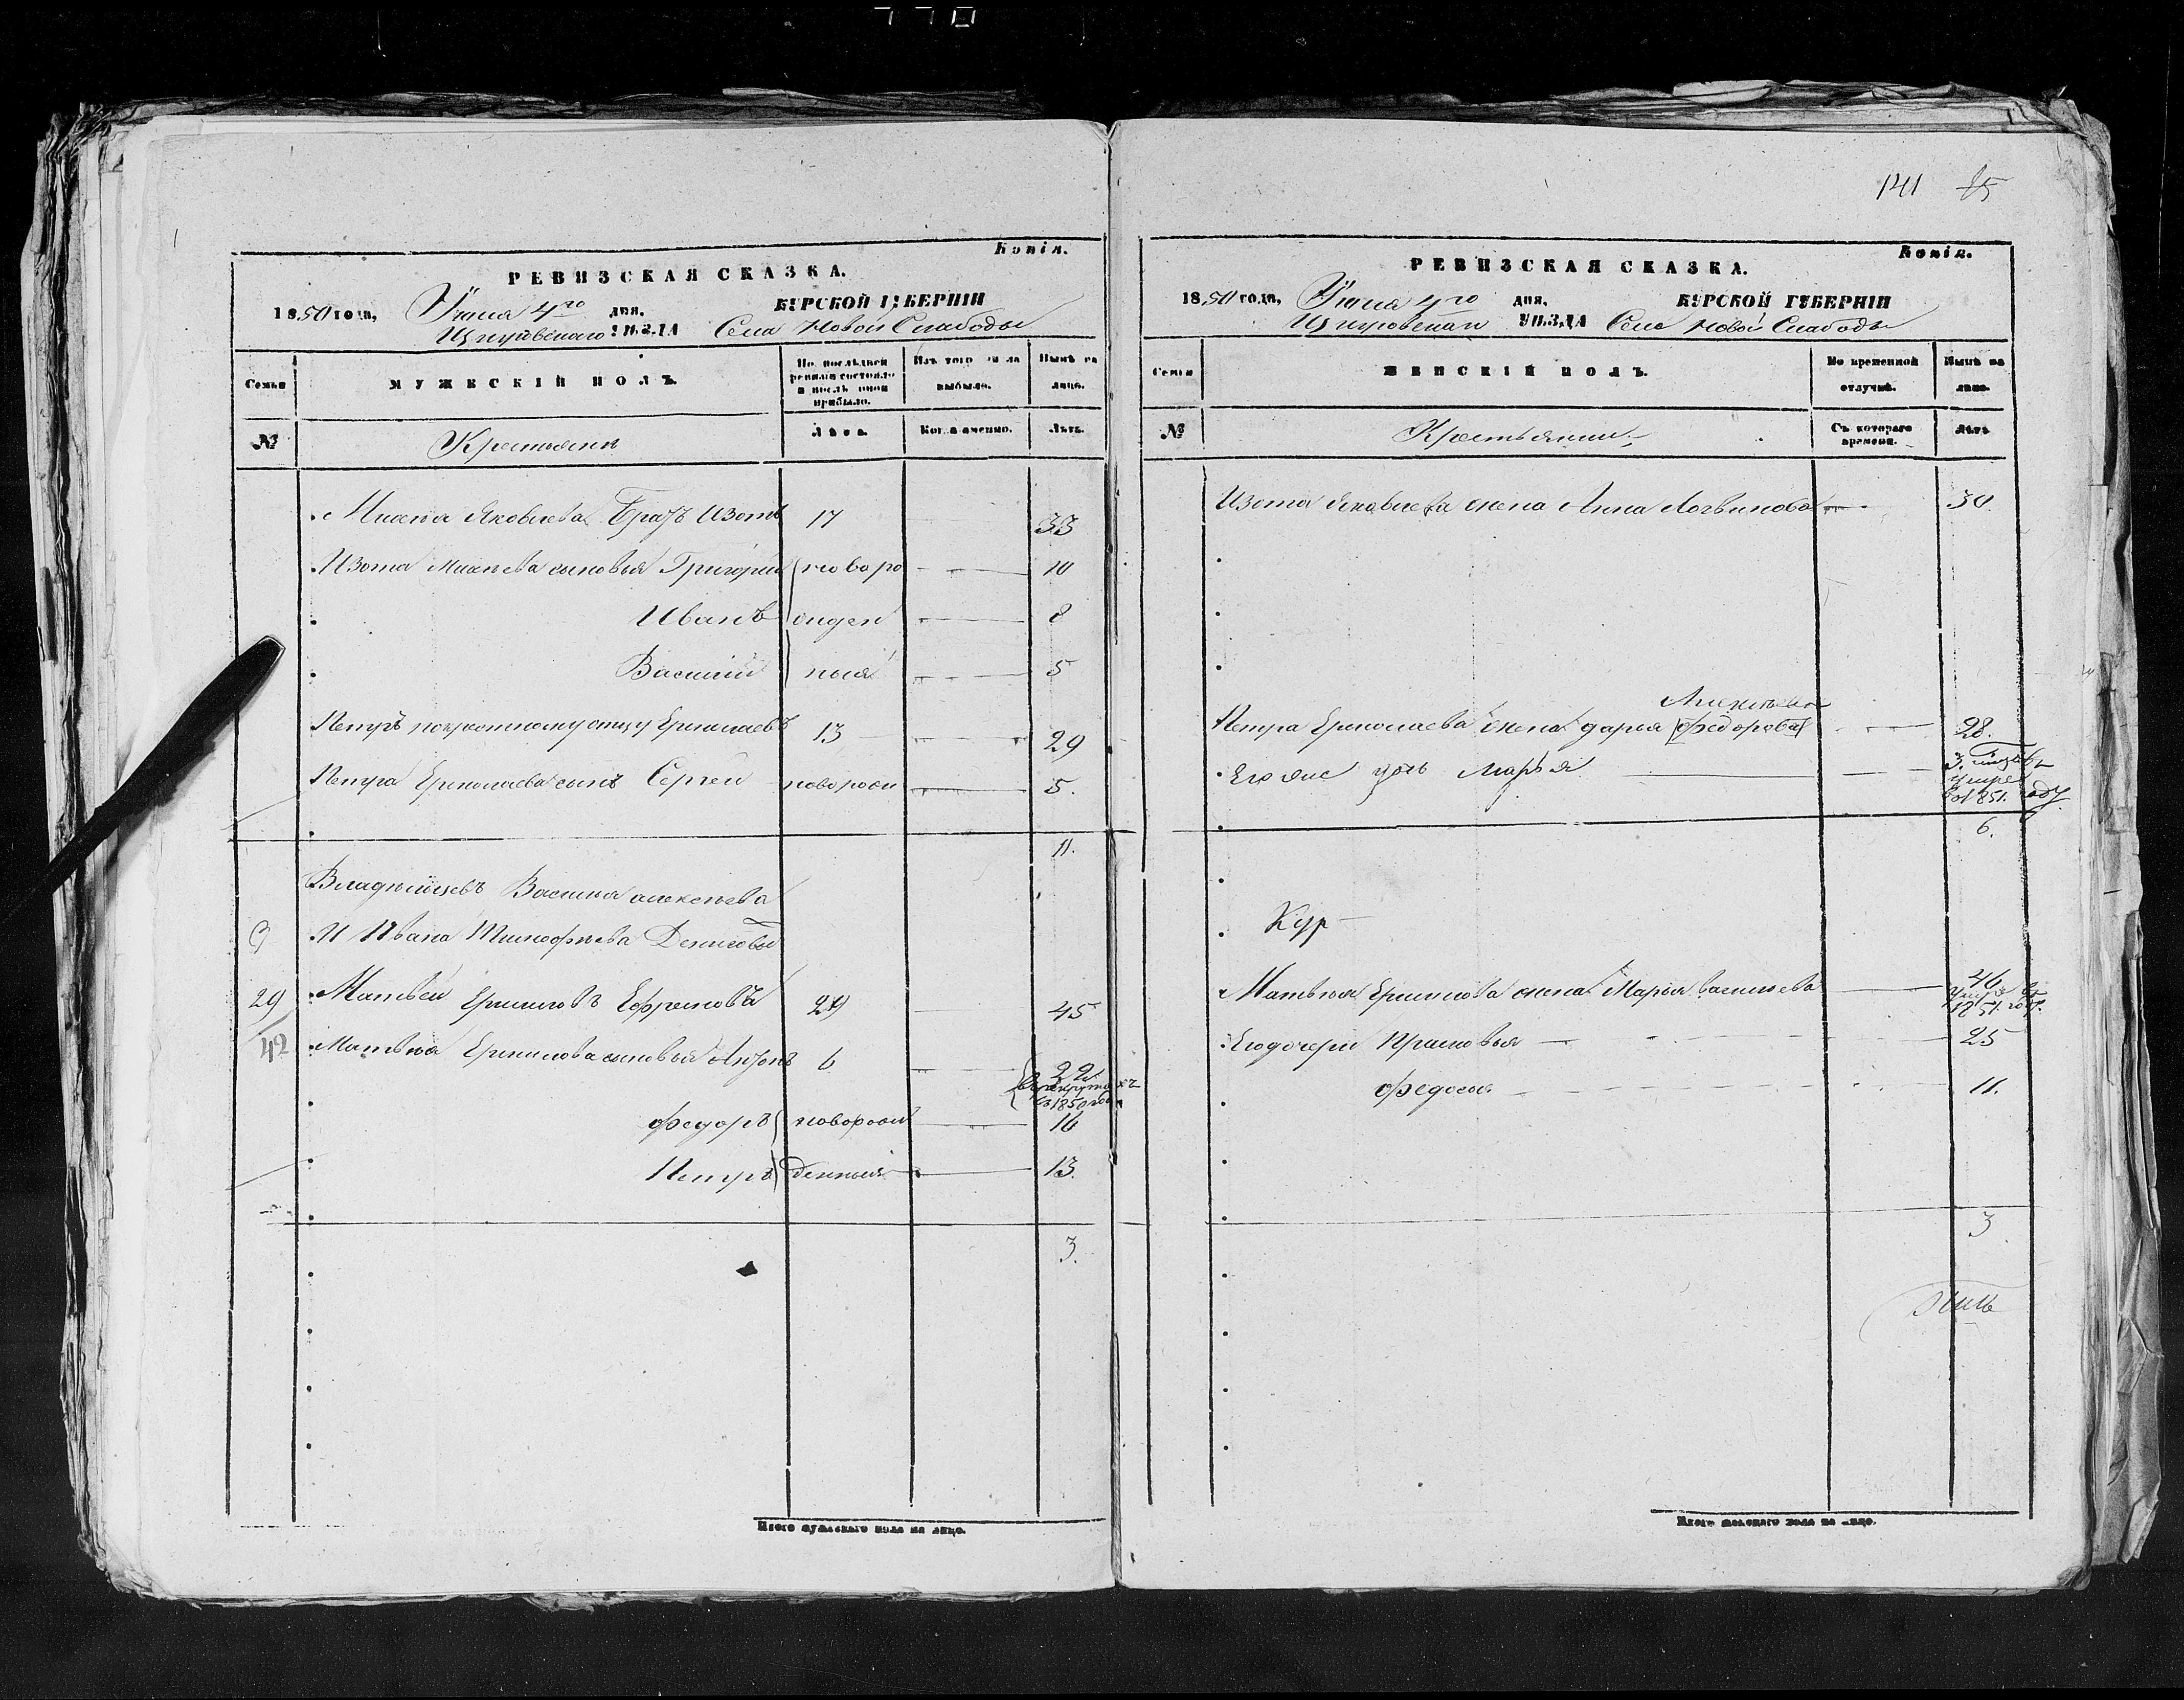 770
Копія.
РЕВИЗСКАЯ СКАЗКА.
1850 года, Іюня 4го дня, КУРСКОЙ ГУБЕРНІИ
УѢЗДА Села Новой Слабоды
Семьи
МУЖЕСКІЙ ПОЛЪ.
По послѣдней ревизіи состояло и послѣ оной прибыло.
Изъ того числа выбыло.
Нынѣ на лицо.
№
Крестьяне
Лѣта.
Когда именно.
Лѣтъ.
Яковлева Братъ Изотъ 17 33
Изота сыновья Григорій новоро 10
Иванъ жден 8
Василій ныя 5
Петръ по крестному отцу Ермолаевъ 13 29
Петра Ермолаева сынъ Сергей новорож 5.
11.
Василья алексѣева
9 И Ивана Денисовы
29 Матвей Ермиловъ Ефремовъ 29 45
42 Матвѣя Ермилова сыновья Антонъ 6 22
в рекруты
в 1850 год
Федоръ новорож 16
Петръ денныя 13.
3.
Итого мужескаго пола на лицо.
141 85
Копія.
РЕВИЗСКАЯ СКАЗКА.
1850 года, Іюня 4го дня, КУРСКОЙ ГУБЕРНІИ
УѢЗДА Села Новой Слабоды
Семьи
ЖЕНСКІЙ ПОЛЪ.
Во временной отлучкѣ.
Нынѣ на лицо.
№
Крестьянки
Съ котораго времени.
Лѣтъ
Изота Яковлева жена Анна Логвинова 30.
Петра Ермолаева жена дарья Федорова 28.
Его же дочь Марья 3.
умре
во 1851. году
6.
Кур
Матвѣя Ермилова жена Марья васильева 46
умре въ
1851. году
Его дочери Прасковья 25
Федосья 11.
3
Итого женскаго пола на лицо.